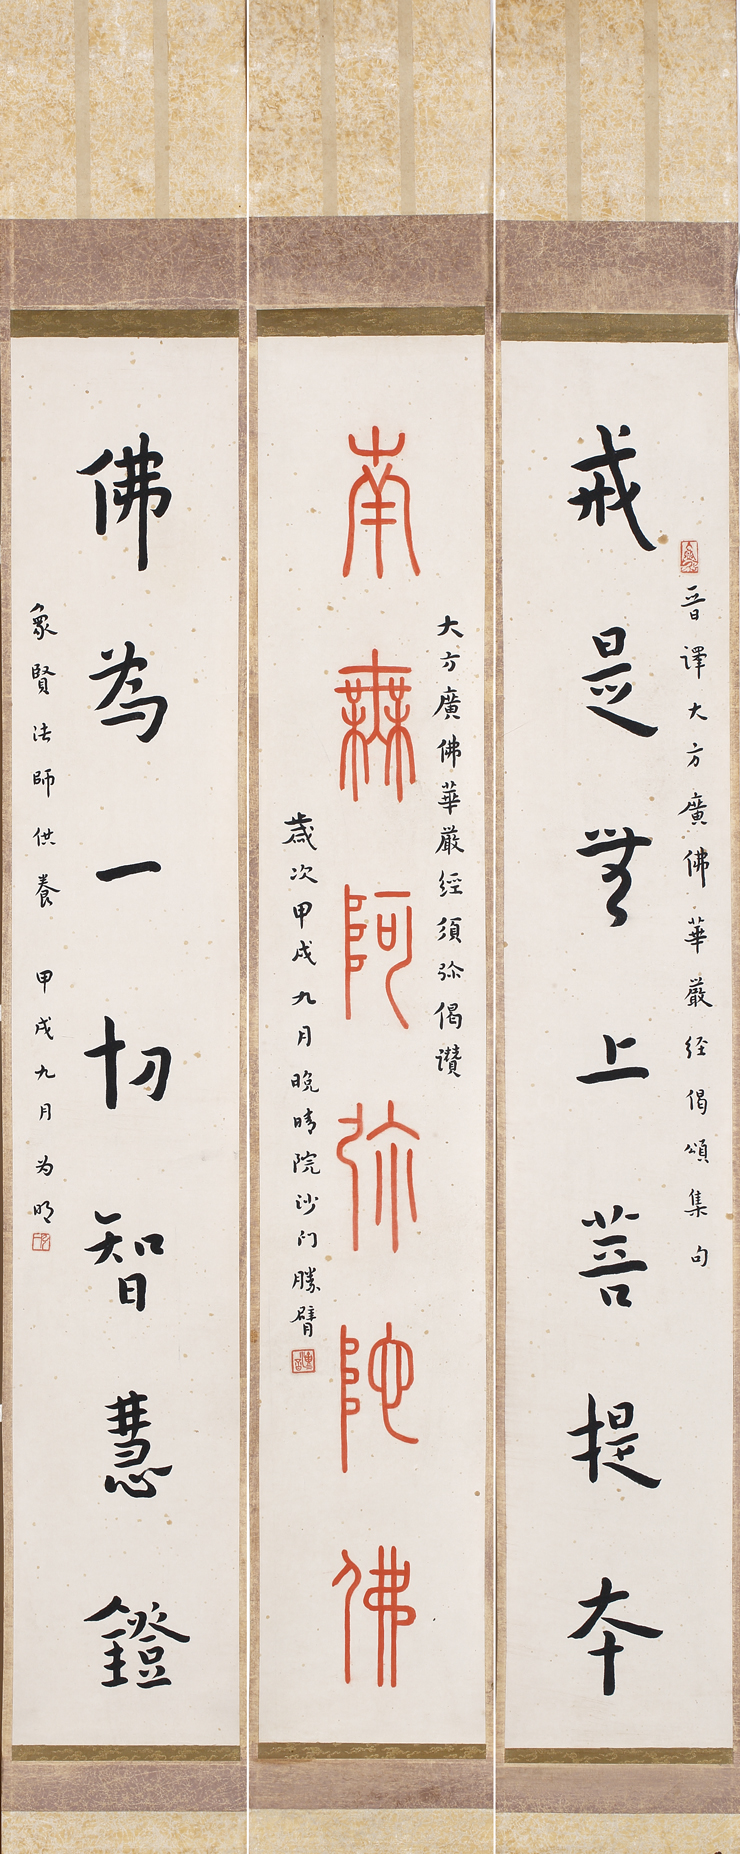 晉譯大方廣佛華嚴經偈頌集句
戒是無上菩提本
大方廣佛華嚴經須弥偈讚
南無阿弥陀佛
歲次甲戌九月晚晴院沙门勝臂
佛為一切智慧鐙
象賢法師供養 甲戌九月为明